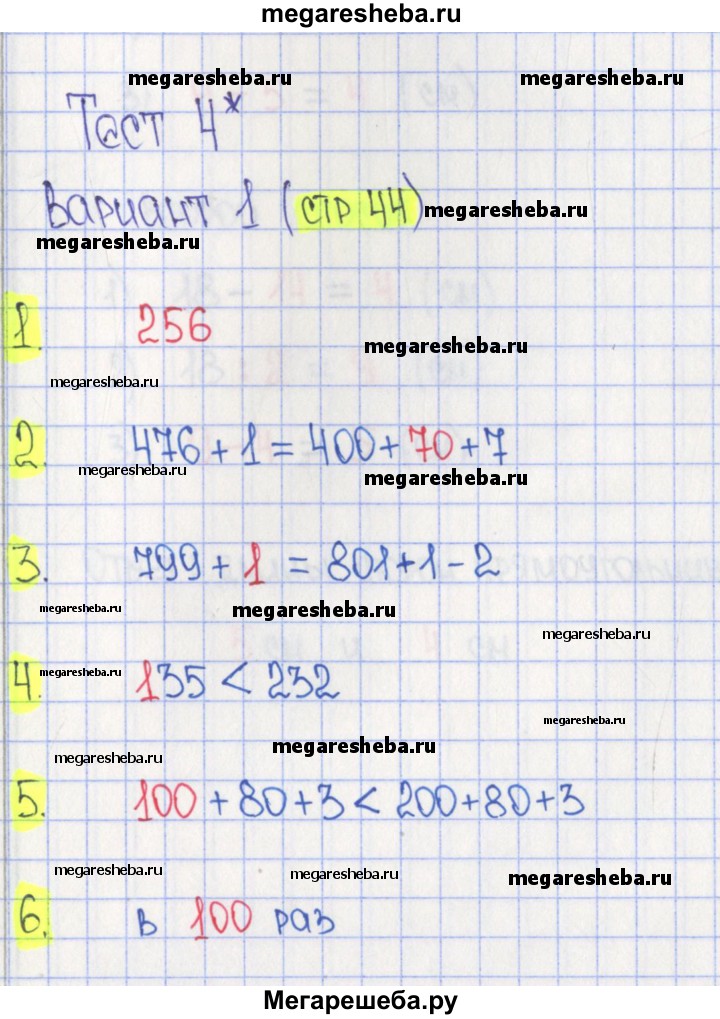 megaresheba.ru
megaresheba.ru megaresheba.ru
Тест 4*
Вариант 1 (стр 44) megaresheba.ru
megaresheba.ru
1. 256
megaresheba.ru
megaresheba.ru
2. 476 + 1 = 400 + 70 + 7
megaresheba.ru
megaresheba.ru
3. 799 + 1 = 801 + 1 - 2
megaresheba.ru megaresheba.ru
megaresheba.ru
4. 135 < 232
megaresheba.ru
megaresheba.ru
megaresheba.ru
megaresheba.ru
5. 100 + 80 + 3 < 200 + 80 + 3
megaresheba.ru megaresheba.ru megaresheba.ru
6. в 100 раз
Мегарешеба.ру